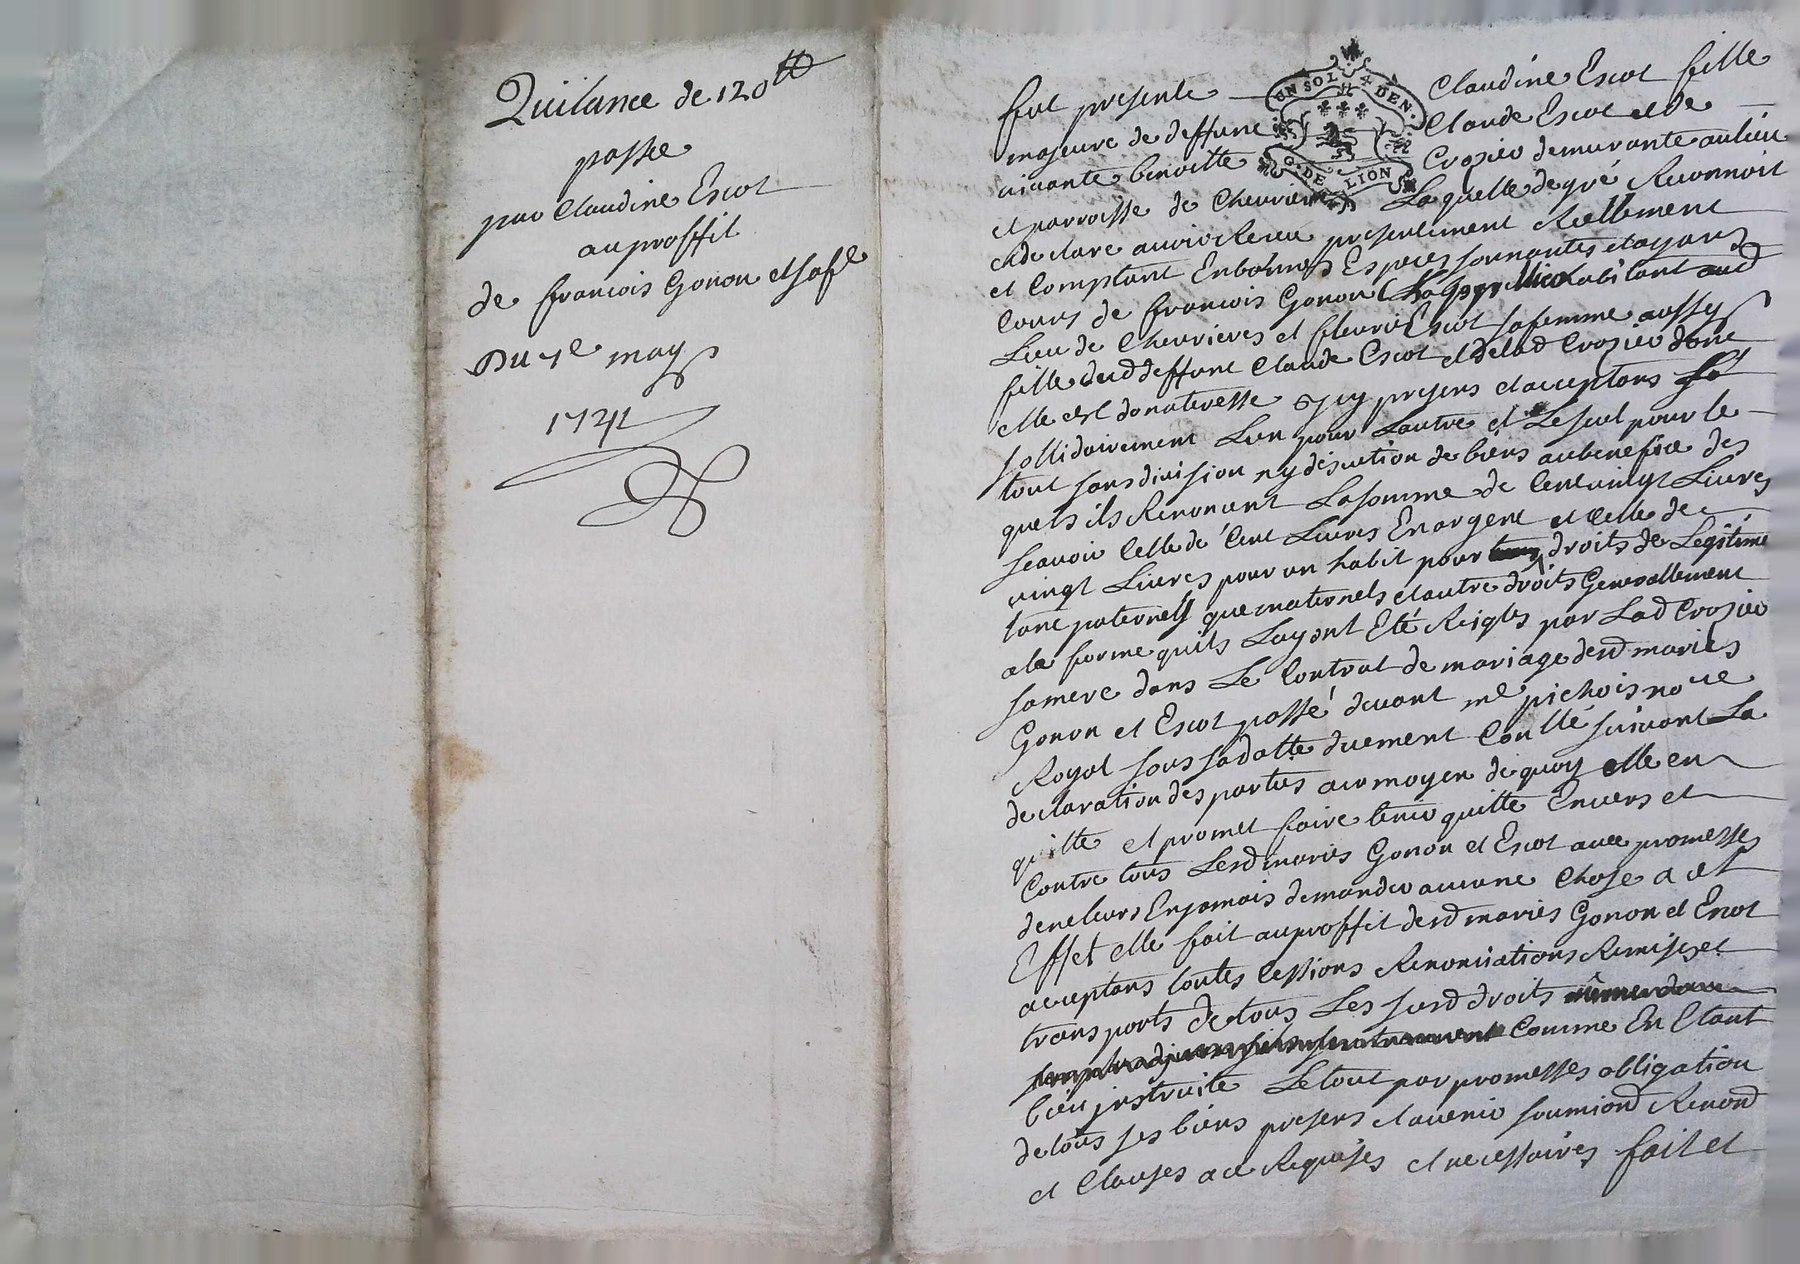 Quitance de 120 tt
passée
par Claudine Escot
au proffit
de francois Gonon et sa fe
Du 7e may
1741
fut presente Claudine Escot fille
UN SOL 4 DEN.
G. DE LION
majeure de deffunt Claude Escot et de
vivante benoitte Crozier demurante au lieu
et parroisse de Chevrieres Laquelle de gré Reconnoit
et declare avoir Receu presentement Reellement
et Comptant En bonnes Especes sonnantes et ayant
Cours de francois Gonon habitant aud
Lieu de Chevrieres et fleurie Escot sa femme aussy
fille dud deffunt Claude Escot et de lad Crozier dont
elle est donateresse Icy presens et acceptans
sollidairement Lun pour Lautre et Le seul pour le
tout sans division ny discution de biens au benefice des
quels ils Renoncent La somme de Cent vingt Livres
scavoir Celle de Cent Livres En argent et Celle de
vingt Livres pour un habit pour droits de Legitime
tant paternels que maternels et autre droits Generallement
a la forme quils Layent Eté Reigles par Lad Crozier
sa mere dans Le Contrat de mariage desd mariés
Gonon et Escot passé devant me pichois nore
Royal sous sa datte duement Conllé suivant La
declaration des parties au moyen de quoy elle en
quitte et promet faire tenir quitte Envers et
Contre tous Lesd mariés Gonon et Escot avec promesses
de ne leurs En jamais demander aucune Chose a cet
Effet elle fait au proffit desd mariés Gonon et Escot
acceptans toutes Cessions Renonciations Remises et
transports de tous Les susd droits
Comme En Etant
bien instruite Le tout par promesses obligation
de tous ses biens presens et avenir soumiond Renond
et Clauses a ce Requises et necessaires fait et